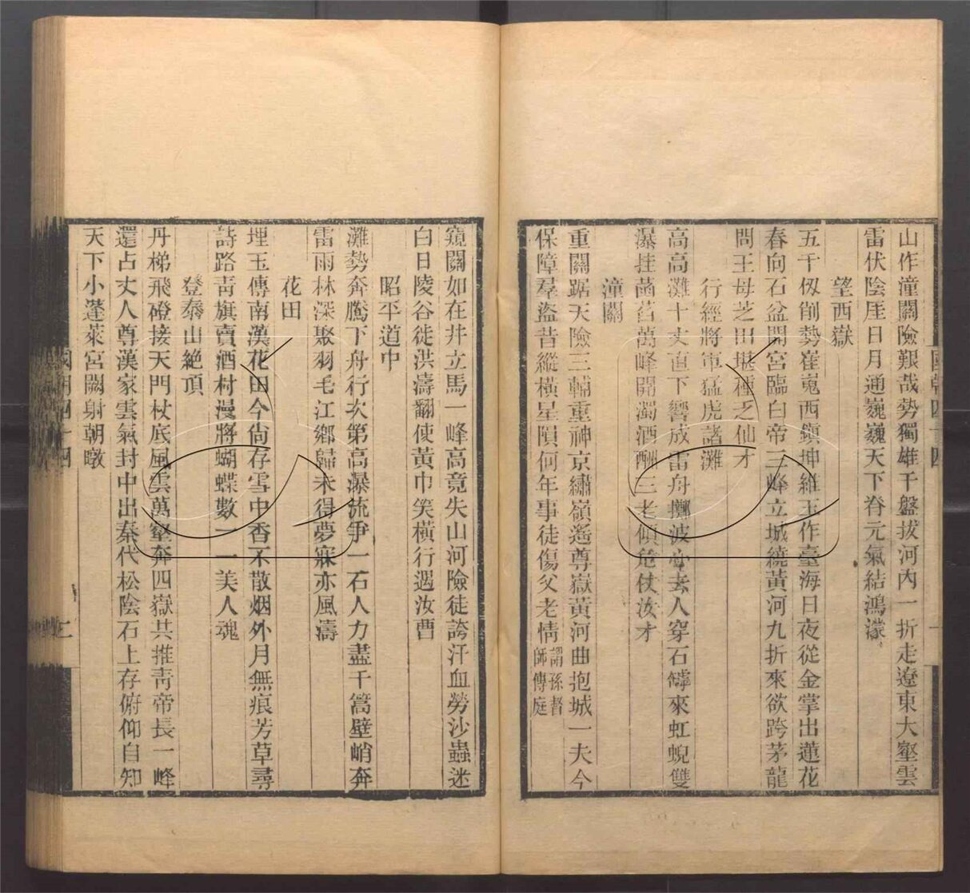 山作潼關險艱哉勢獨雄千盤拔河內一折走遼東大壑雲
雷伏陰厓日月通巍巍天下脊元氣結鴻濛
望西嶽
五千仭削勢崔嵬西鎭坤維玉作臺海日夜從金掌出蓮花
春向石盆開宮臨白帝三峰立城繞黃河九折來欲跨茅龍
問王母芝田堪種乏仙才
行經將軍猛虎諸灘
高高灘十丈直下響成雷舟擲波心去人穿石罅來虹蜺雙
瀑挂菡萏萬峰開濁酒酬三老傾危仗汝才
潼關
重關踞天險三輔重神京繡嶺遙尊嶽黃河曲抱城一夫今
保障羣盜昔縱橫星隕何年事徒傷父老情謂孫督師傳庭
窺關如在井立馬一峰高竟失山河險徒誇汗血勞沙蟲迷
白日陵谷徙洪濤翻使黃巾笑橫行遇汝曹
昭平道中
灘勢奔騰下舟行次第高瀑流爭一石人力盡千篙壁峭奔
雷雨林深聚羽毛江鄉歸未得夢寐亦風濤
花田
埋玉傳南漢花田今尙存雪中香不散烟外月無痕芳草尋
詩路靑旗賣酒村漫將蝴蝶數一一美人魂
登泰山絶頂
丹梯飛磴接天門杖底風雲萬壑奔四嶽共推靑帝長一峰
還占丈人尊漢家雲氣封中出秦代松陰石上存俯仰自知
天下小蓬萊宮闕射朝暾